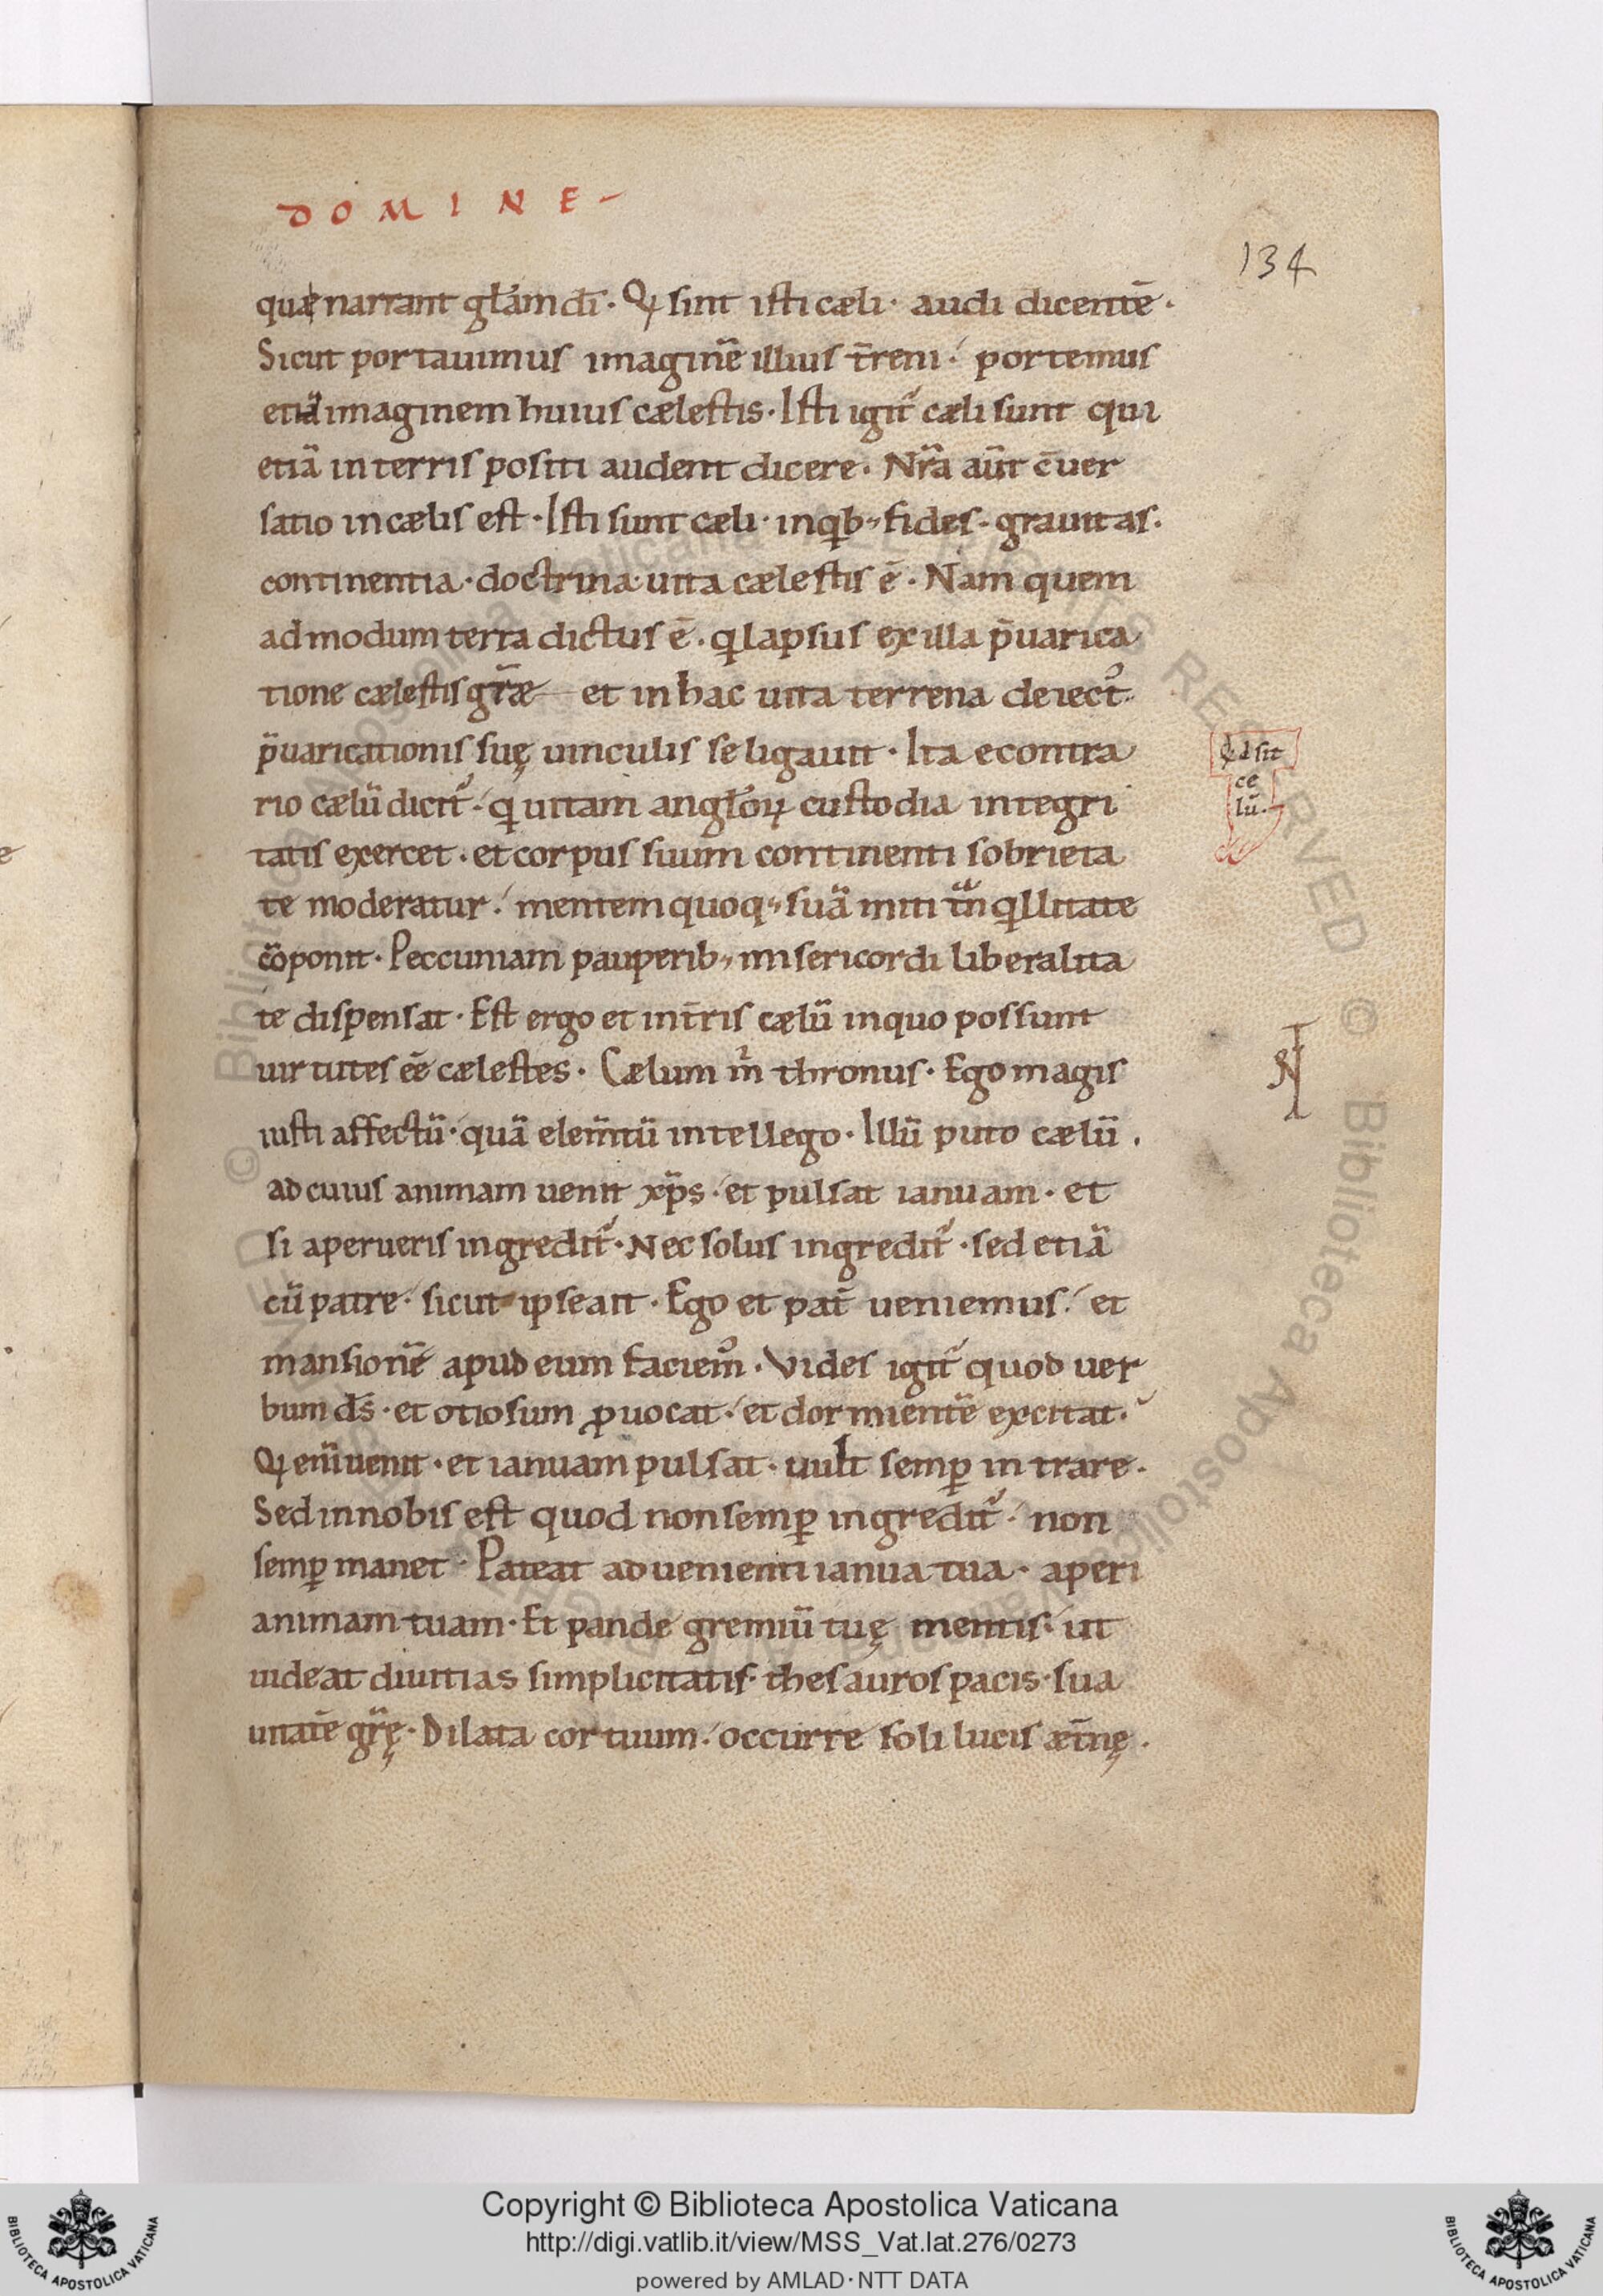 DOMINE
134
quae narrant gl̅am dī. Qi sint isti cæli. audi dicentē.
Sicut portauimus imaginē illius t̅reni. portemus
etiā imaginem huius cælestis. Isti igit᷑ cæli sunt qui
etiā in terris positi audent dicere. Nr̅a aūt c̅uer
satio in cælis est. Isti sunt cæli. in qib; fides. grauitas.
continentia. doctrina. uita cælestis ē. Nam quem
ad modum terra dictus ē. qi lapsus ex illa p̅uarica
tione cælestis gr̅æ et in hac uita terrena deiect᷒.
p̅uaricationis suę uinculis se ligauit. Ita econtra
rio cælū dicit᷑. qi uitam angl̅oꝝ custodia integri
tatis exercet. et corpus suum continenti sobrieta
te moderatur. mentem quoq; suā miti t̅nqillitate
cōponit. Peccuniam pauperib; misericordi liberalita
te dispensat. Est ergo et in t̅ris cælū in quo possunt
uirtutes eē cælestes. Cælum m̅ thronus. Ego magis
iusti affectū. quā elem̅tū intellego. Illū puto cælū.
ad cuius animam uenit xp̅s. et pulsat ianuam. et
si aperueris ingredit᷑. Nec solus ingredit᷑. sed etiā
cū patre. sicut ipse ait. Ego et pat̅ ueniemus. et
mansionē apud eum faciem᷒. Vides igit᷑ quod uer
bum ds̅. et otiosum ꝓuocat. et dormientē excitat.
Qi enī uenit. et ianuam pulsat. uult semꝑ intrare.
Sed in nobis est quod non semꝑ ingredit᷑. non
semꝑ manet. Pateat aduenienti ianua tua. aperi
animam tuam. Et pande gremiū tuę mentis. ut
uideat diuitias simplicitatis. thesauros pacis. sua
uitatē gr̅ę. Dilata cor tuum. occurre soli lucis æt̅nę.
Qd sit
ce
lū.
Copyright © Biblioteca Apostolica Vaticana
http://digi.vatlib.it/view/MSS_Vat.lat.276/0273
powered by AMLAD·NTT DATA
BIBLIOTECA APOSTOLICA VATICANA
BIBLIOTECA APOSTOLICA VATICANA